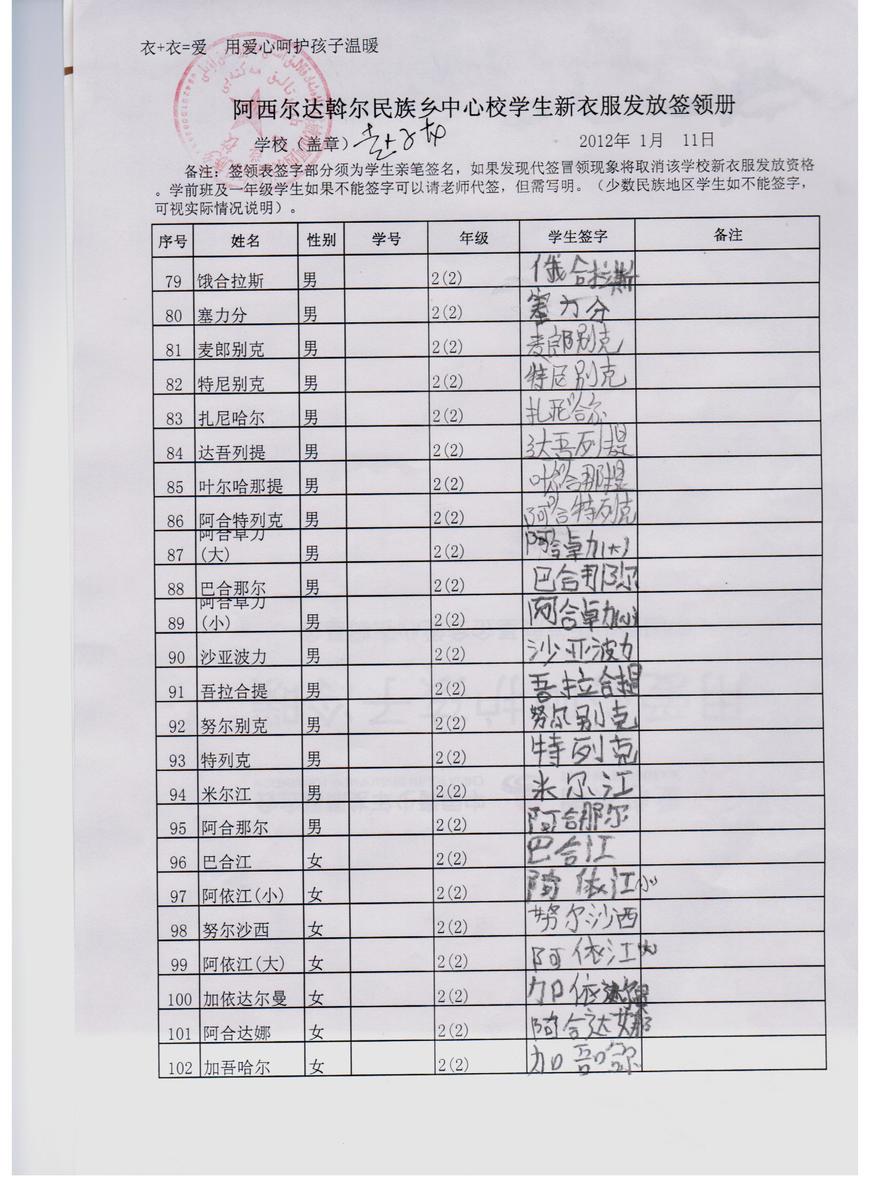 衣+衣=爱 用爱心呵护孩子温暖
阿西尔达斡尔民族乡中心校学生新衣服发放签领册
学校（盖章） 2012年 1月 11日
备注：签领表签字部分须为学生亲笔签名，如果发现代签冒领现象将取消该学校新衣服发放资格
。学前班及一年级学生如果不能签字可以请老师代签，但需写明。（少数民族地区学生如不能签字，
可视实际情况说明）。
序号 姓名 性别 学号 年级 学生签字 备注
79 饿合拉斯 男 2(2) 俄合拉斯
80 塞力分 男 2(2) 塞力分
81 麦郎别克 男 2(2) 麦郎别克
82 特尼别克 男 2(2) 特尼别克
83 扎尼哈尔 男 2(2) 扎尼哈尔
84 达吾列提 男 2(2) 达吾列提
85 叶尔哈那提 男 2(2) 叶尔哈那提
86 阿合特列克 男 2(2) 阿合特列克
阿合卓力
87 (大) 男 2(2) 阿合卓力(大)
88 巴合那尔 男 2(2) 巴合那尔
阿合卓力
89 (小) 男 2(2) 阿合卓力(小)
90 沙亚波力 男 2(2) 沙亚波力
91 吾拉合提 男 2(2) 吾拉合提
92 努尔别克 男 2(2) 努尔别克
93 特列克 男 2(2) 特列克
94 米尔江 男 2(2) 米尔江
95 阿合那尔 男 2(2) 阿合那尔
96 巴合江 女 2(2) 巴合江
97 阿依江(小) 女 2(2) 阿依江(小)
98 努尔沙西 女 2(2) 努尔沙西
99 阿依江(大) 女 2(2) 阿依江(大)
100 加依达尔曼 女 2(2) 加依达尔曼
101 阿合达娜 女 2(2) 阿合达娜
102 加吾哈尔 女 2(2) 加吾哈尔